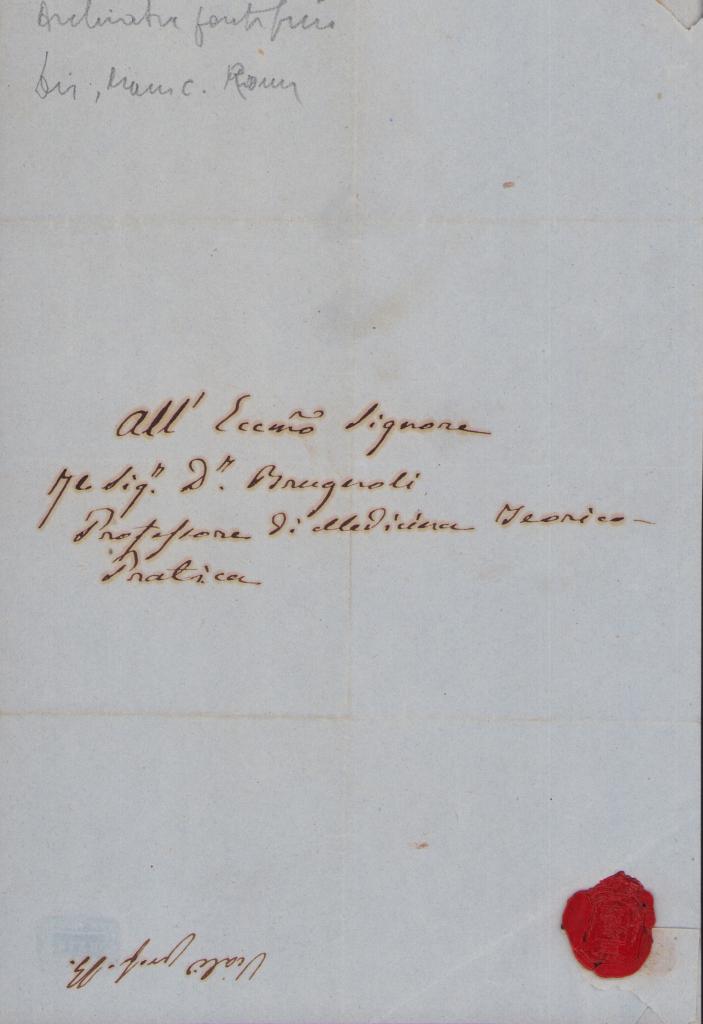 Archiatra pontificio
All' Eccmo Signore
Il Sigr. Dr. Brugnoli
Professore di Medicina Teorico-
Pratica
Viale prof. B.